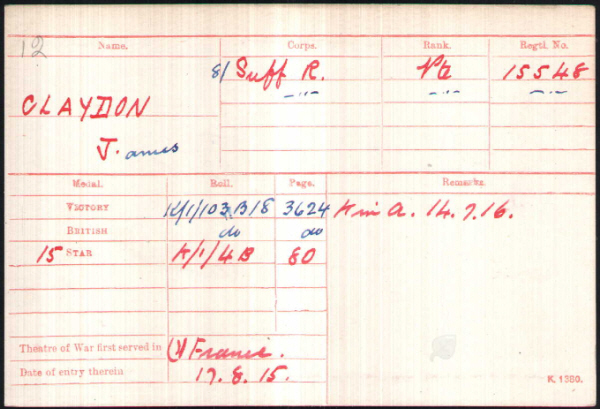 12
Name. Corps. Rank. Regtl. No.
8/ Suff R. Pte 15548
CLAYDON -"- -"- -"-
J. ames
Medal. Roll. Page. Remarks.
VICTORY K/1/103B18 3624 K in A. 14.7.16.
BRITISH do do
15 STAR K/1/4B 80
Theatre of War first served in (1) France.
Date of entry therein 17.8.15.
K. 1380.